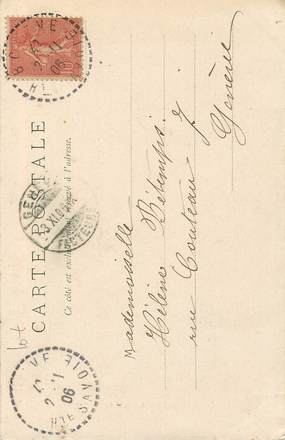 CARTE POSTALE
Ce côté est exclusivement réservé à l'adresse.
Mademoiselle
Hélène Bétemps
rue Couteau 7
Genève
VE
2 - 11
06
Hte SAVOIE